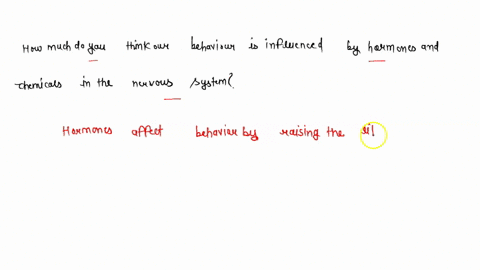 How much do you think our behaviour is influenced by hormones and
chemicals in the nervous system?
Hormones affect behavior by raising the